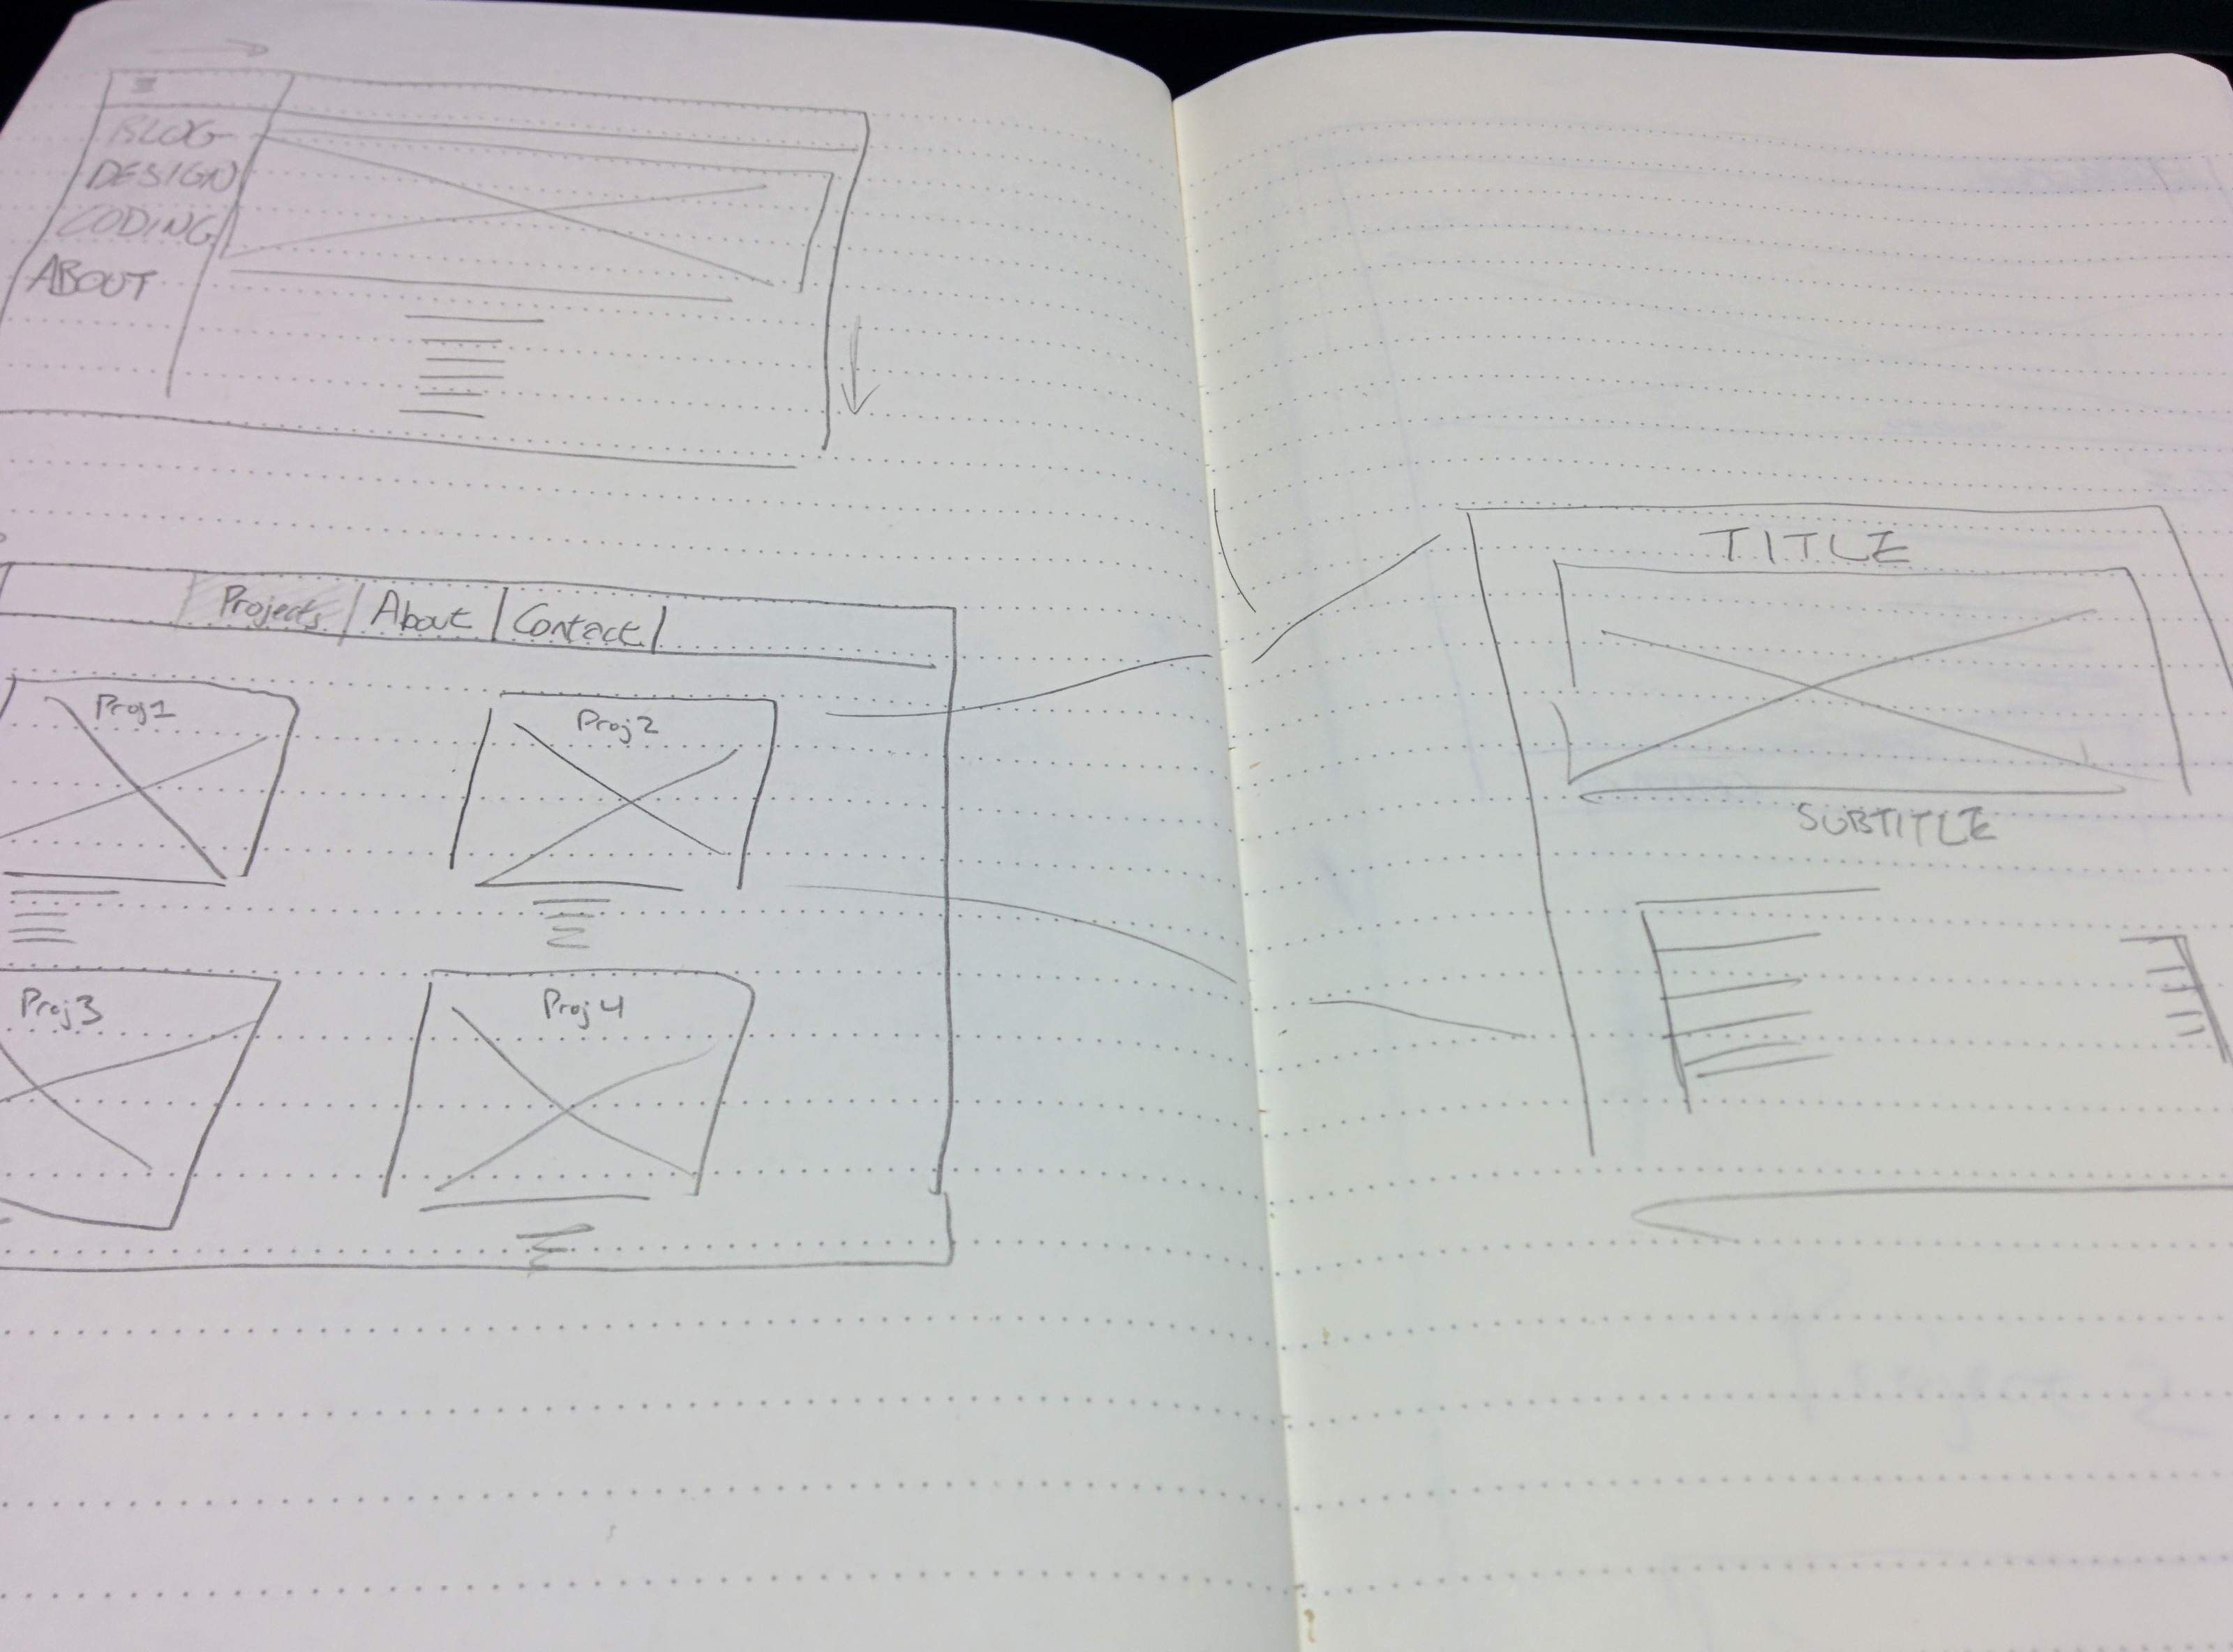 BLOG
DESIGN
CODING
ABOUT
Projects About Contact
Proj1 Proj2
Proj3 Proj4
TITLE
SUBTITLE